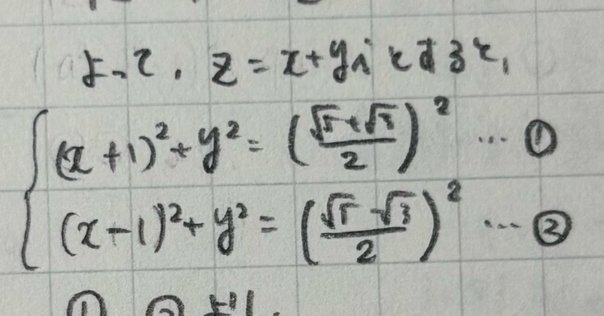 よって, z = x+yi とすると,
(x+1)²+y² = ((√5+√3)/2)² … ①
(x-1)²+y² = ((√5-√3)/2)² … ②
①, ②より,